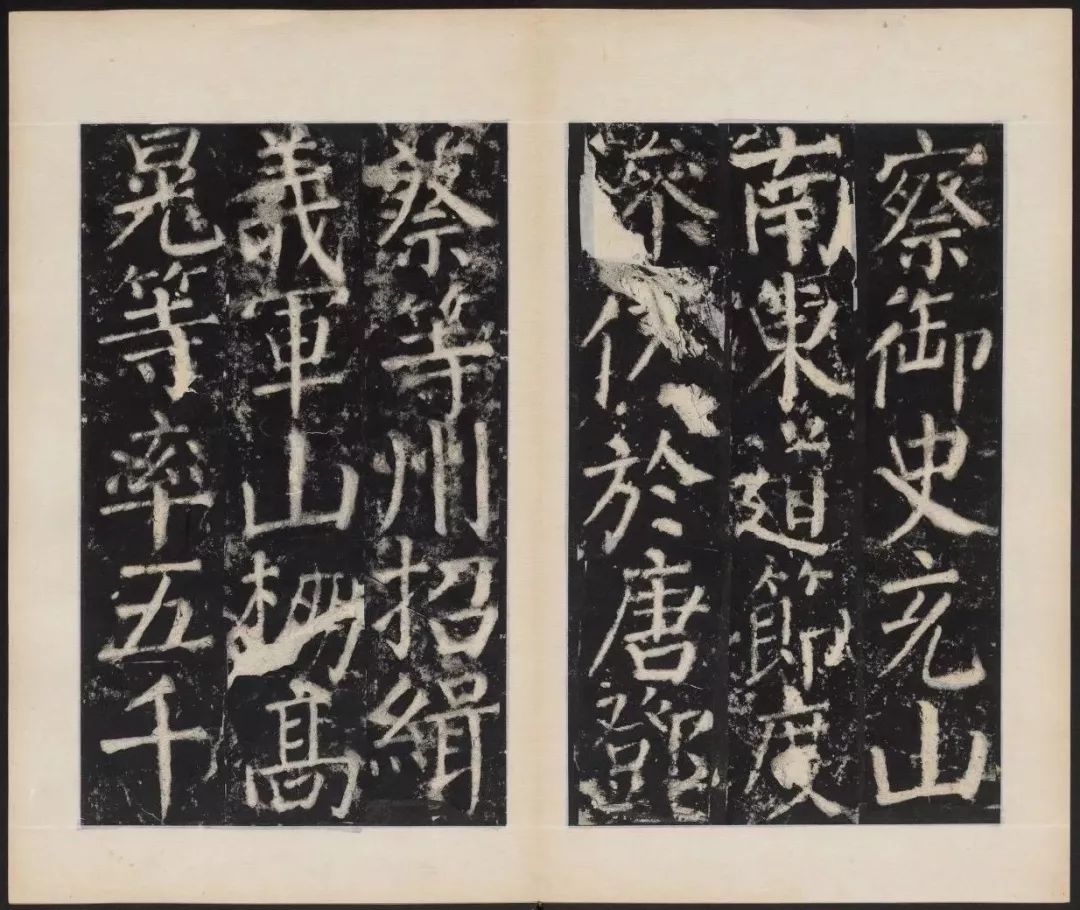 察御史充山
南東道節度
叅於唐鄧
蔡等州招緝
義軍山棚髙
晃等率五千